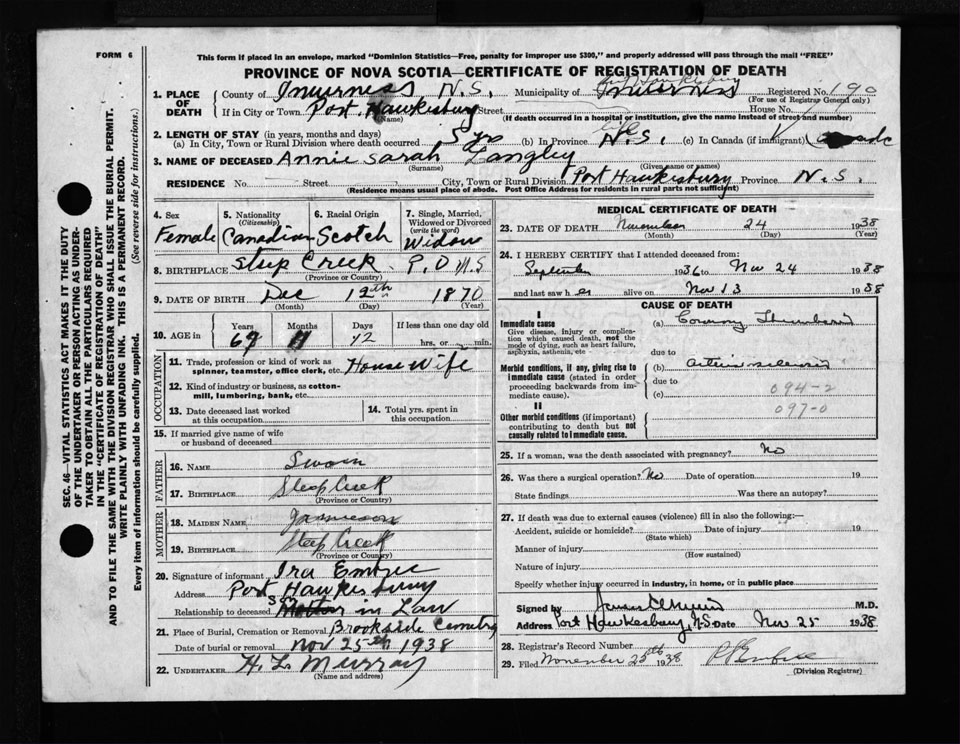 FORM 6
This form if placed in an envelope, marked "Dominion Statistics—Free, penalty for improper use $300," and properly addressed will pass through the mail "FREE"
PROVINCE OF NOVA SCOTIA—CERTIFICATE OF REGISTRATION OF DEATH
1. PLACE OF DEATH
County of Inverness N.S. Municipality of Port Hawkesbury Inverness Registered No. 190
(For use of Registrar General only)
If in City or Town Port Hawkesbury Street House No.
(Name) (If death occurred in a hospital or institution, give the name instead of street and number)
2. LENGTH OF STAY (in years, months and days)
(a) In City, Town or Rural Division where death occurred 5 yrs (b) In Province life N.S. (c) In Canada (if immigrant)
3. NAME OF DECEASED Annie Sarah Langley
(Surname) (Given name or names)
RESIDENCE No. Street City, Town or Rural Division Port Hawkesbury Province N.S.
(Residence means usual place of abode. Post Office Address for residents in rural parts not sufficient)
4. Sex
Female
5. Nationality
(Citizenship)
Canadian
6. Racial Origin
Scotch
7. Single, Married, Widowed or Divorced
(write the word)
Widow
8. BIRTHPLACE Steep Creek P.O N.S
(Province or Country)
9. DATE OF BIRTH Dec 12th 1870
(Month) (Day) (Year)
10. AGE in
Years Months Days If less than one day old
67 11 12 hrs. or min.
OCCUPATION
11. Trade, profession or kind of work as spinner, teamster, office clerk, etc. House Wife
12. Kind of industry or business, as cotton-mill, lumbering, bank, etc.
13. Date deceased last worked at this occupation
14. Total yrs. spent in this occupation
15. If married give name of wife or husband of deceased
FATHER
16. NAME Swain
17. BIRTHPLACE Steep Creek
(Province or Country)
MOTHER
18. MAIDEN NAME Jamieson
19. BIRTHPLACE Steep Creek
(Province or Country)
20. Signature of informant Ira Embree
Address Port Hawkesbury
Relationship to deceased Son in Law
21. Place of Burial, Cremation or Removal Brookside Cemetry
Date of burial or removal Nov 25th 1938
22. UNDERTAKER H. L. Murray
(Name and address)
MEDICAL CERTIFICATE OF DEATH
23. DATE OF DEATH November 24 1938
(Month) (Day) (Year)
24. I HEREBY CERTIFY that I attended deceased from:
September 1936 to Nov 24 1938
and last saw her alive on Nov 23 1938
CAUSE OF DEATH
I
Immediate cause
Give disease, injury or complication which caused death, not the mode of dying, such as heart failure, asphyxia, asthenia, etc
(a) Coronary Thrombosis
due to
Morbid conditions, if any, giving rise to immediate cause (stated in order proceeding backwards from immediate cause).
(b) arteriosclerosis
due to
(c) 094-2
097-0
II
Other morbid conditions (if important) contributing to death but not causally related to immediate cause.
25. If a woman, was the death associated with pregnancy? No
26. Was there a surgical operation? No Date of operation 19
State findings Was there an autopsy?
27. If death was due to external causes (violence) fill in also the following:—
Accident, suicide or homicide? Date of injury 19
(State which)
Manner of injury
(How sustained)
Nature of injury
Specify whether injury occurred in industry, in home, or in public place
Signed by M.D.
Address Port Hawkesbury, N.S. Date Nov 25 1938
28. Registrar's Record Number
29. Filed November 25th 1938
(Division Registrar)
SEC. 46—VITAL STATISTICS ACT MAKES IT THE DUTY
OF THE UNDERTAKER OR PERSON ACTING AS UNDERTAKER TO OBTAIN ALL THE PARTICULARS REQUIRED
IN THE "CERTIFICATE OF REGISTRATION OF DEATH"
AND TO FILE THE SAME WITH THE DIVISION REGISTRAR WHO SHALL ISSUE THE BURIAL PERMIT.
WRITE PLAINLY WITH UNFADING INK. THIS IS A PERMANENT RECORD.
Every item of information should be carefully supplied. (See reverse side for instructions.)